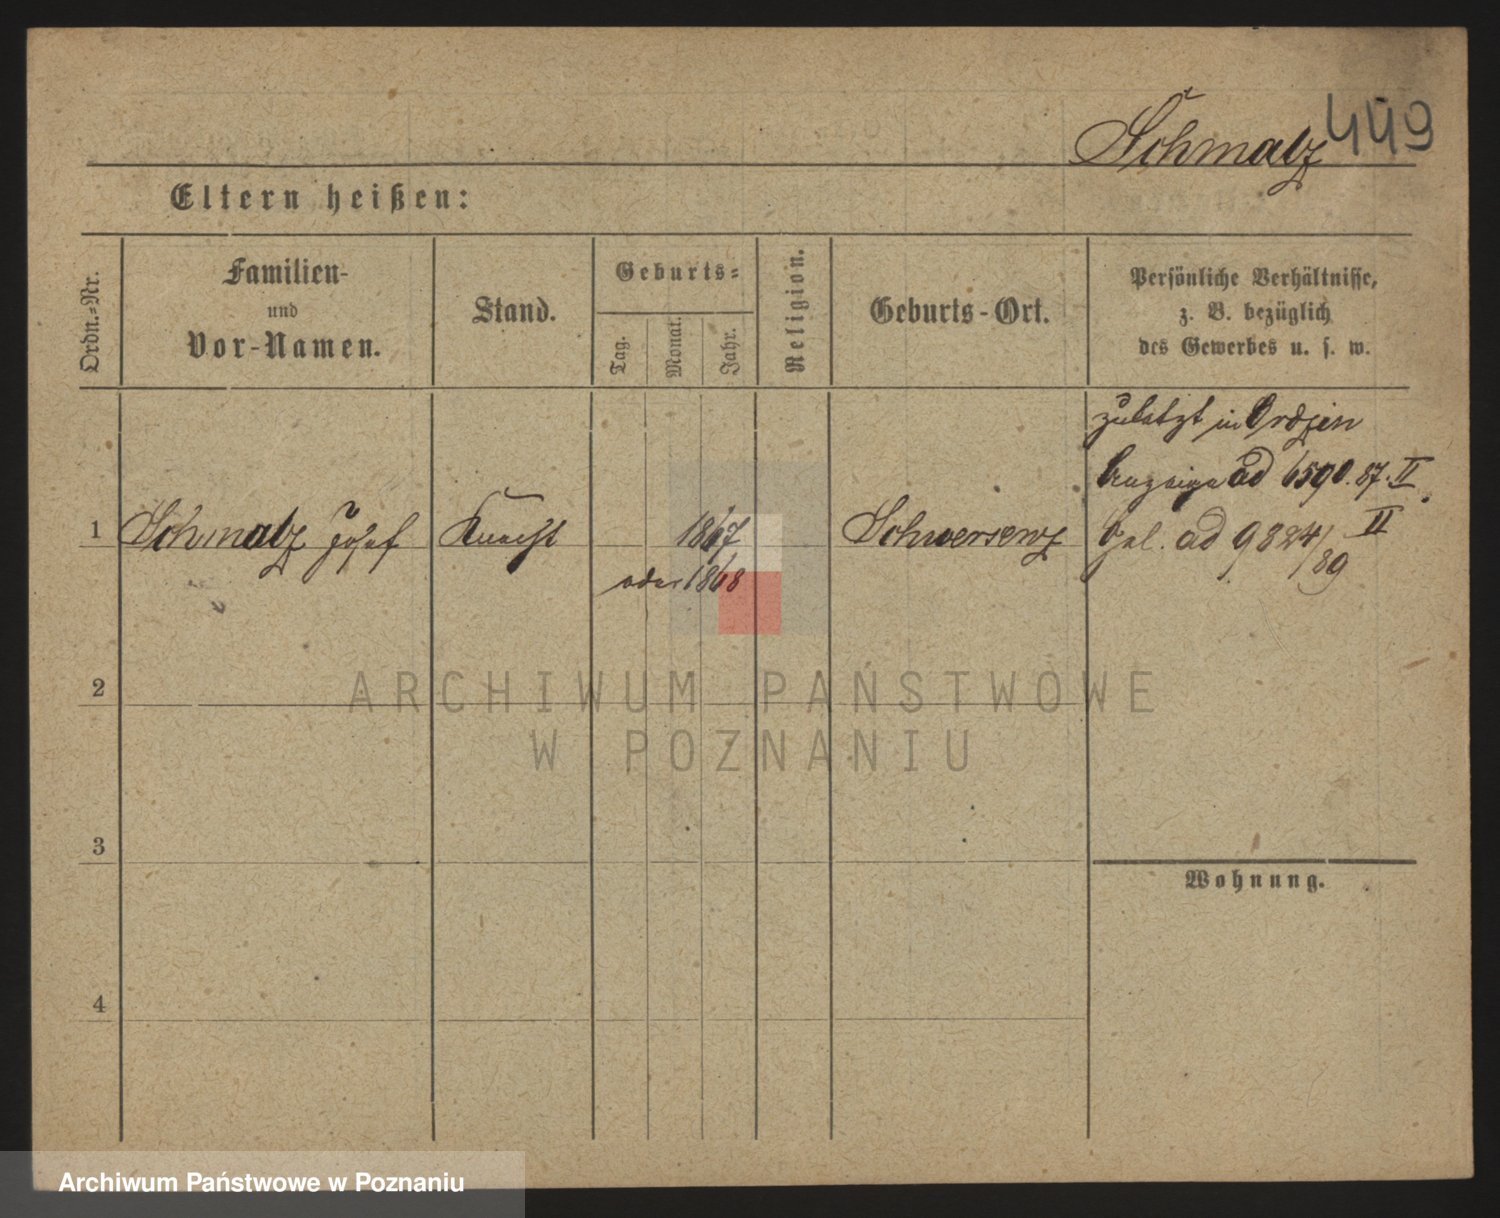 Schmalz 449
Eltern heißen:
Ordn.-Nr.
Familien-
und
Vor-Namen.
Stand.
Geburts-
Tag.
Monat.
Jahr.
Religion.
Geburts-Ort.
Persönliche Verhältnisse,
z. B. bezüglich
des Gewerbes u. s. w.
zuletzt in Ordzin
Anzeige ad 6590. 87. II
1 Schmalz Josef Knecht 1867 Schwersenz
oder 1868
ad 9824/89 II
2
3
4
Wohnung.
ARCHIWUM PAŃSTWOWE
W POZNANIU
Archiwum Państwowe w Poznaniu